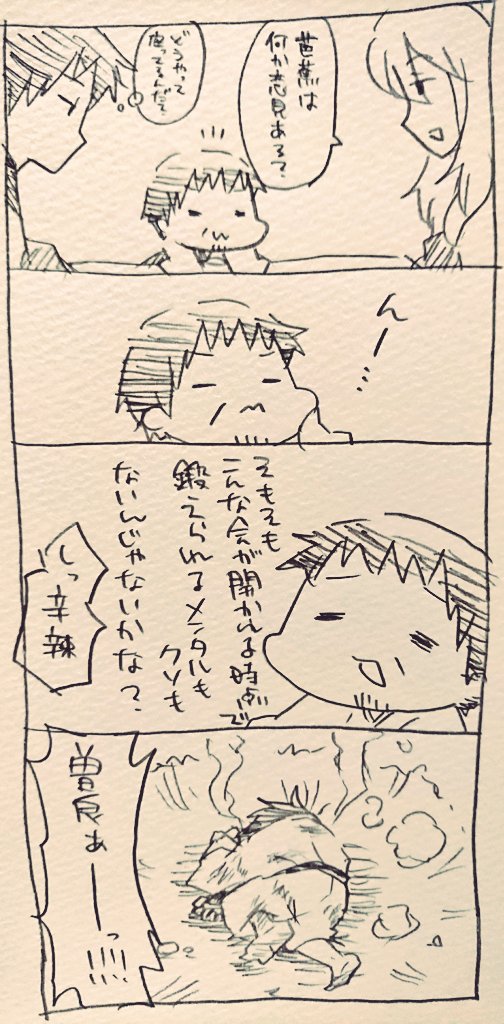 芭蕉は
何か意見ある?
どうやって
座ってるんだ?
んー…
そもそも
こんな会が開かれる時点で
鍛えられるメンタルも
クソも
ないんじゃないかな?
しっ辛辣
曽良ぁーーっ!!!!